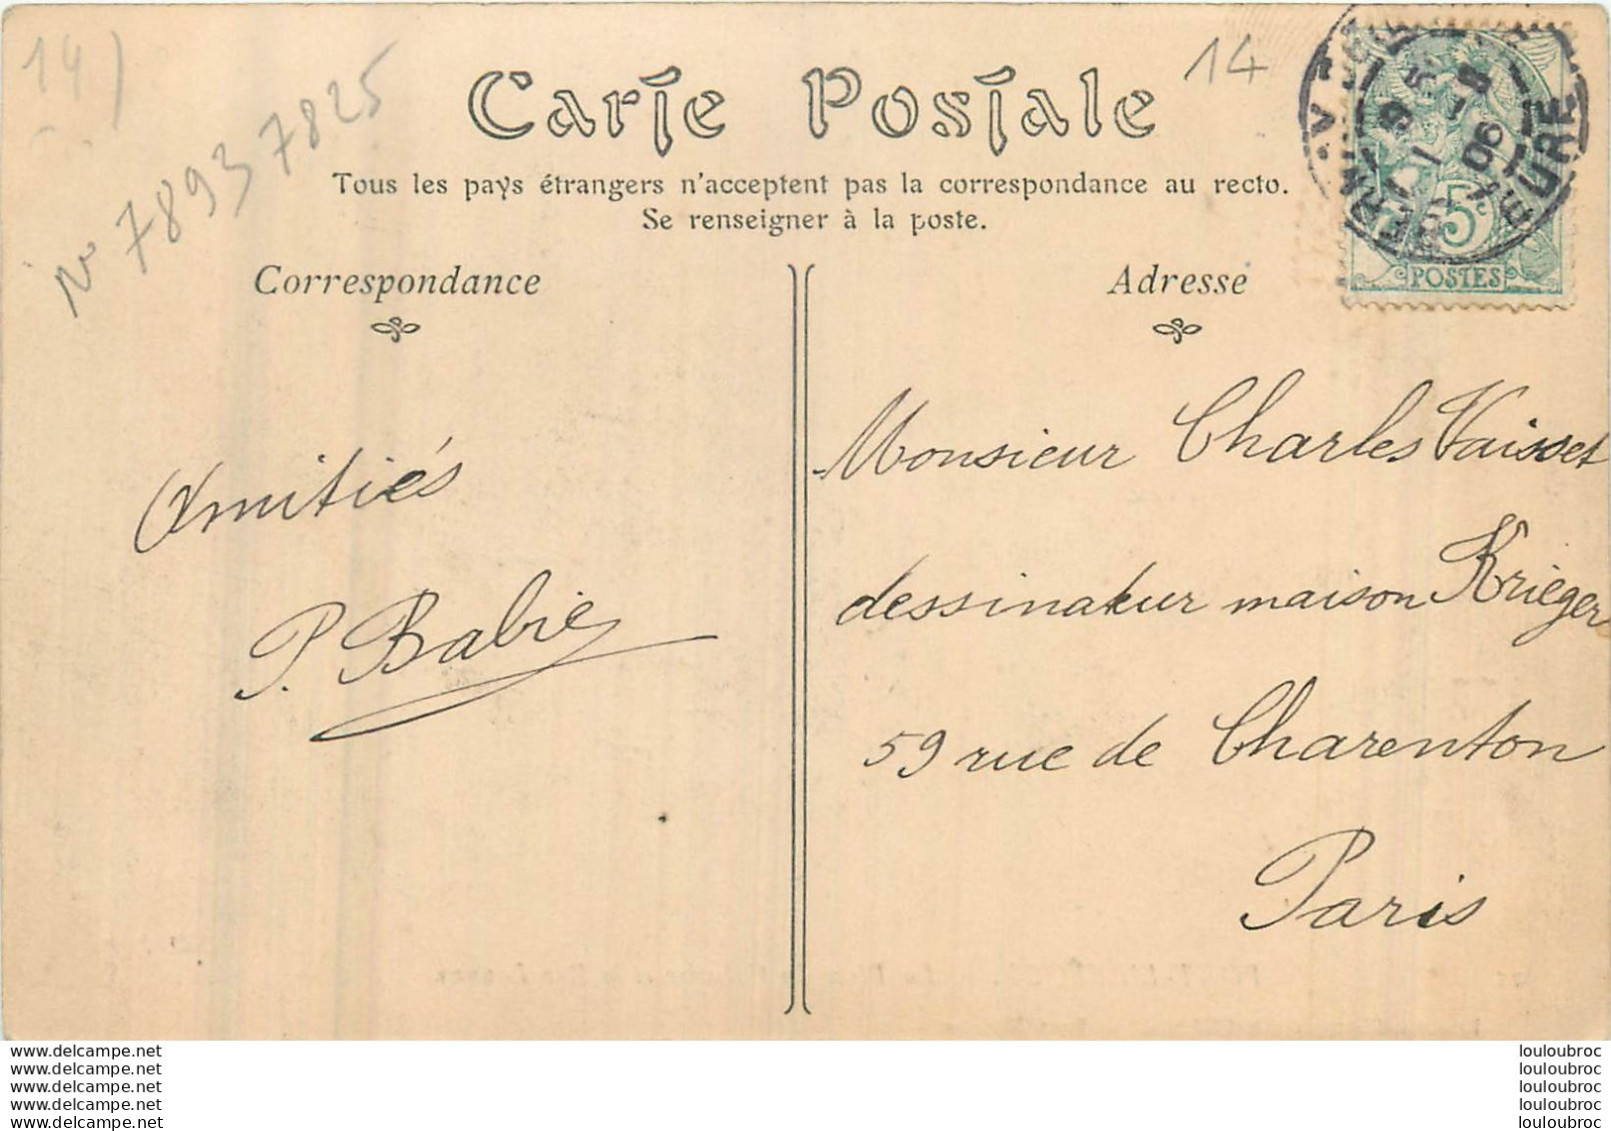 14)
14
Carte Postale
N° 7893 7825
Tous les pays étrangers n'acceptent pas la correspondance au recto.
Se renseigner à la poste.
Correspondance
Adresse
5c
POSTES
EURE
06
Amitiés
P. Babie
Monsieur Charles Vaisset
dessinateur maison Krieger
59 rue de Charenton
Paris
www.delcampe.net
www.delcampe.net
www.delcampe.net
www.delcampe.net
www.delcampe.net
louloubroc
louloubroc
louloubroc
louloubroc
louloubroc